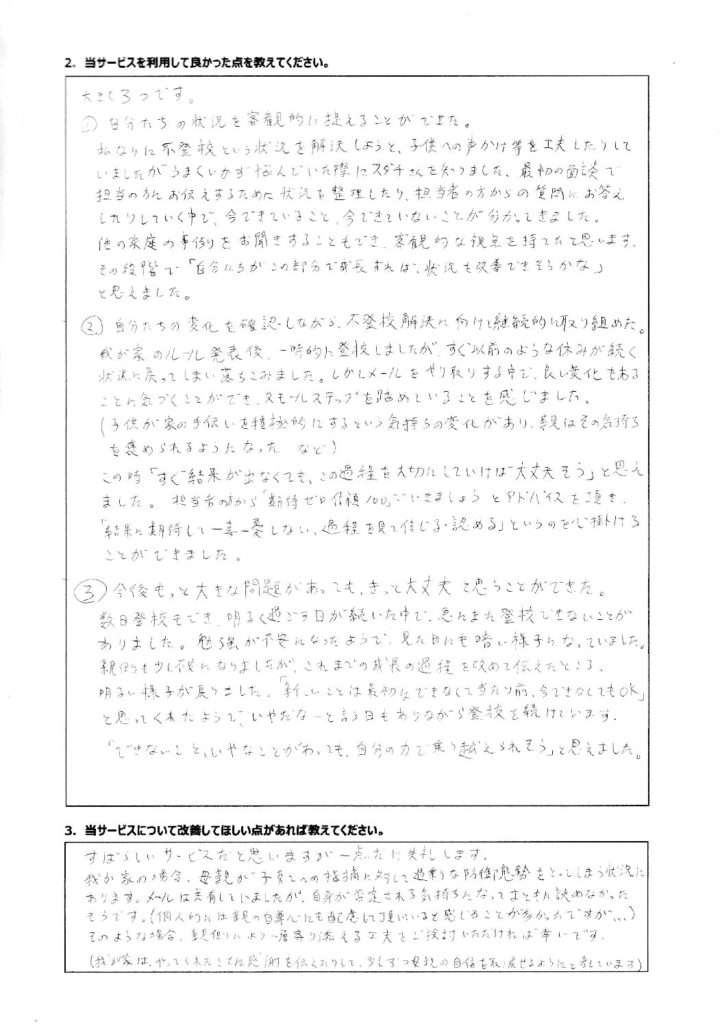 2. 当サービスを利用して良かった点を教えてください。
大きく3つです。
① 自分たちの状況を客観的に捉えることができた。
私なりに不登校という状況を解決しようと、子供への声かけ等を工夫したりして
いましたがうまくいかず悩んでいた際にスダチさんを知りました。最初の面談で
担当の方にお伝えするために状況を整理したり、担当者の方からの質問にお答え
したりしていく中で、今できていること、今できていないことが分かってきました。
他の家庭の事例をお聞きすることもでき、客観的な視点を持てたと思います。
その段階で「自分たちがこの部分で成長すれば、状況を改善できそうかな」
と思えました。
② 自分たちの変化を確認しながら、不登校解決に向けて継続的に取り組めた。
我が家のルール発表後、一時的に登校しましたが、すぐ以前のような休みが続く
状況に戻ってしまい落ちこみました。しかしメールをやり取りする中で、良い変化もある
ことに気づくことができ、スモールステップを踏めていることを感じました。
(子供が家の手伝いを積極的にするという気持ちの変化があり、親はその気持ち
を褒められるようになった など)
この時「すぐ結果が出なくても、この過程を大切にしていけば大丈夫そう」と思え
ました。担当者の方から「期待ゼロ信頼100」でいきましょうとアドバイスを頂き、
「結果に期待して一喜一憂しない、過程を見て信じる・認める」というのを心掛ける
ことができました。
③ 今後もっと大きな問題があっても、きっと大丈夫と思うことができた。
数日登校もでき、明るく過ごす日が続いた中で、急にまた登校できないことが
ありました。勉強が不安になったようで、見た目にも暗い様子になっていました。
親側も少し不安になりましたが、これまでの成長の過程を改めて伝えたところ、
明るい様子が戻りました。「新しいことは最初はできなくて当たり前、今できなくてもOK」
と思ってくれたようで、いやだなーと言う日もありながら登校を続けています。
「できないこと、いやなことがあっても、自分の力で乗り越えられそう」と思えました。
3. 当サービスについて改善してほしい点があれば教えてください。
すばらしいサービスだと思いますが一点だけ失礼します。
我が家の場合、母親が子育てへの指摘に対して過剰な防御態勢をとってしまう状況に
あります。メールは共有していましたが、自身が否定される気持ちになってまともに読めなかった
そうです。(個人的には親の自尊心にも配慮して頂いていると感じることが多かったですが…)
そのような場合、親側により一層寄り添える工夫をご検討いただければ幸いです。
(我が家は、やってくれたことに感謝を伝えたりして、少しずつ母親の自信を取り戻せるようにと考えています)